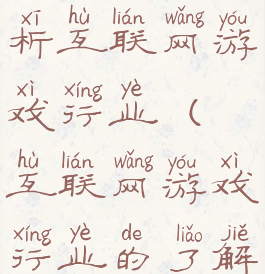 xī hù lián wǎng yóu
析互联网游
xì xíng yè
戏行业（
hù lián wǎng yóu xì
互联网游戏
xíng yè de liǎo jiě
行业的了解